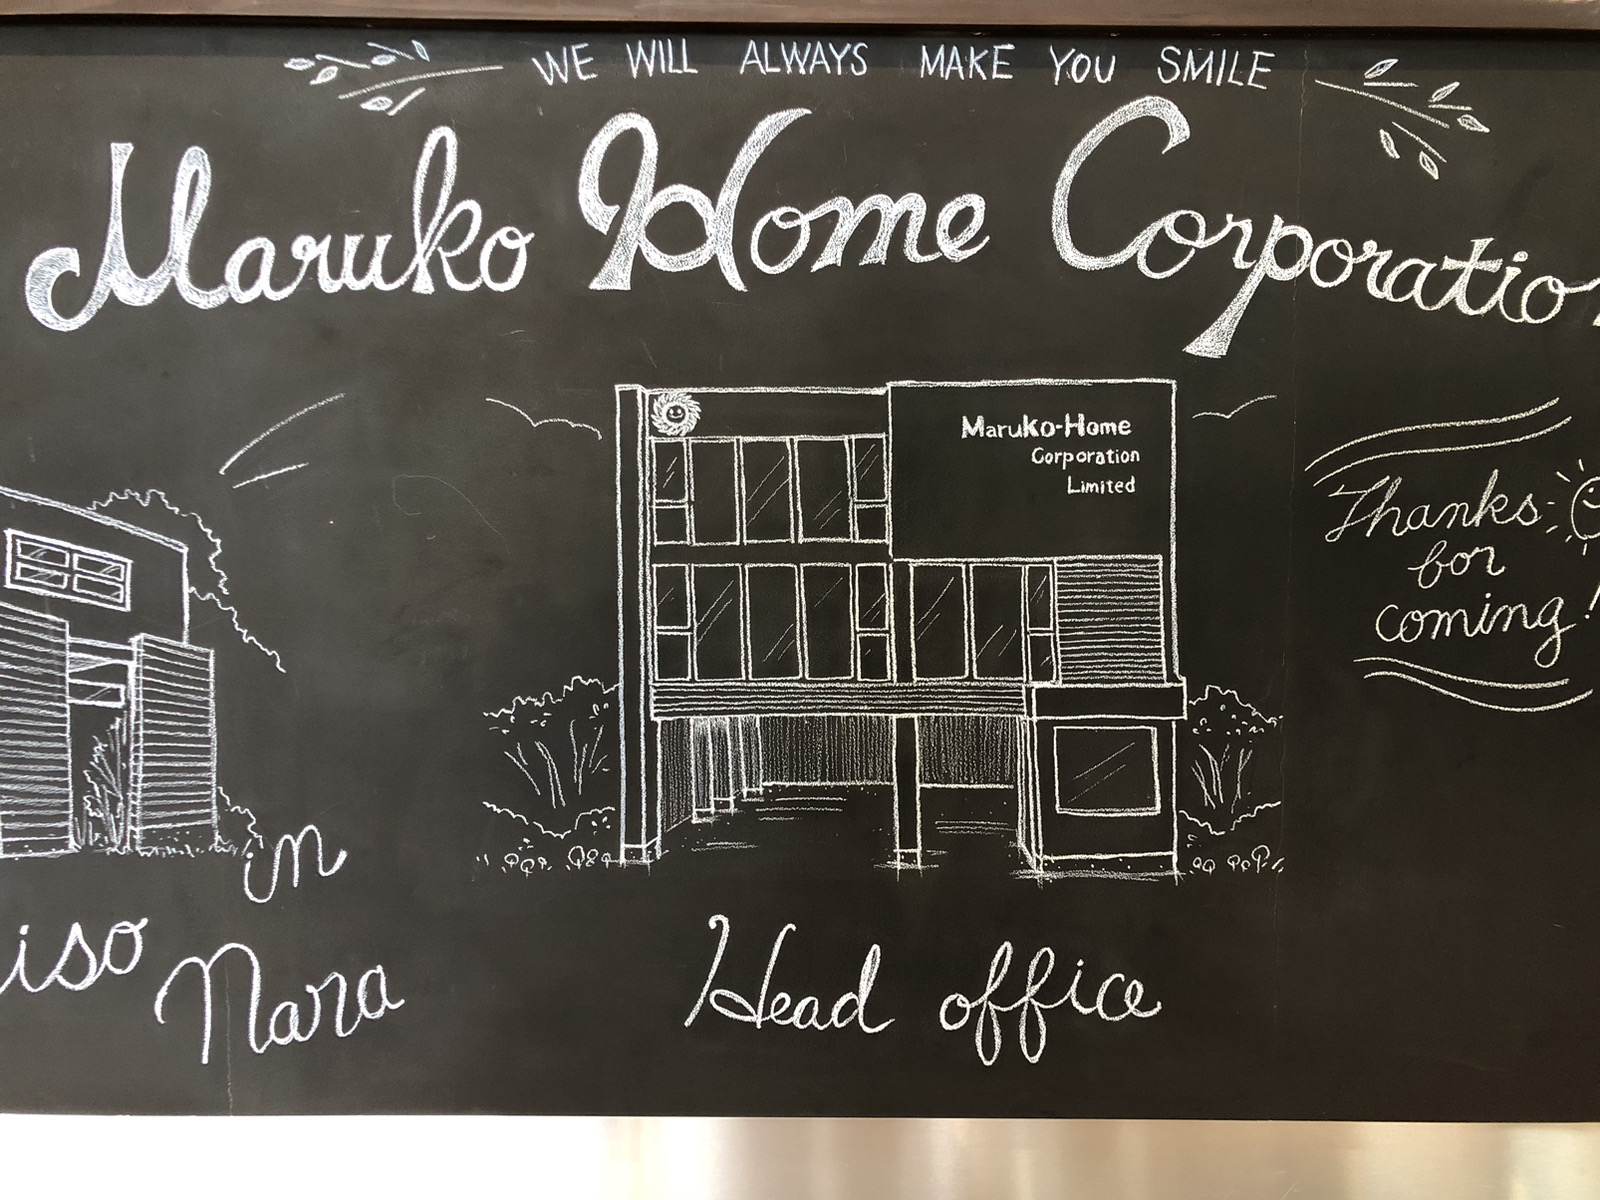 WE WILL ALWAYS MAKE YOU SMILE
Maruko Home Corporation
Maruko-Home
Corporation
Limited
Thanks
for
coming!
in
iso
Nara
Head office